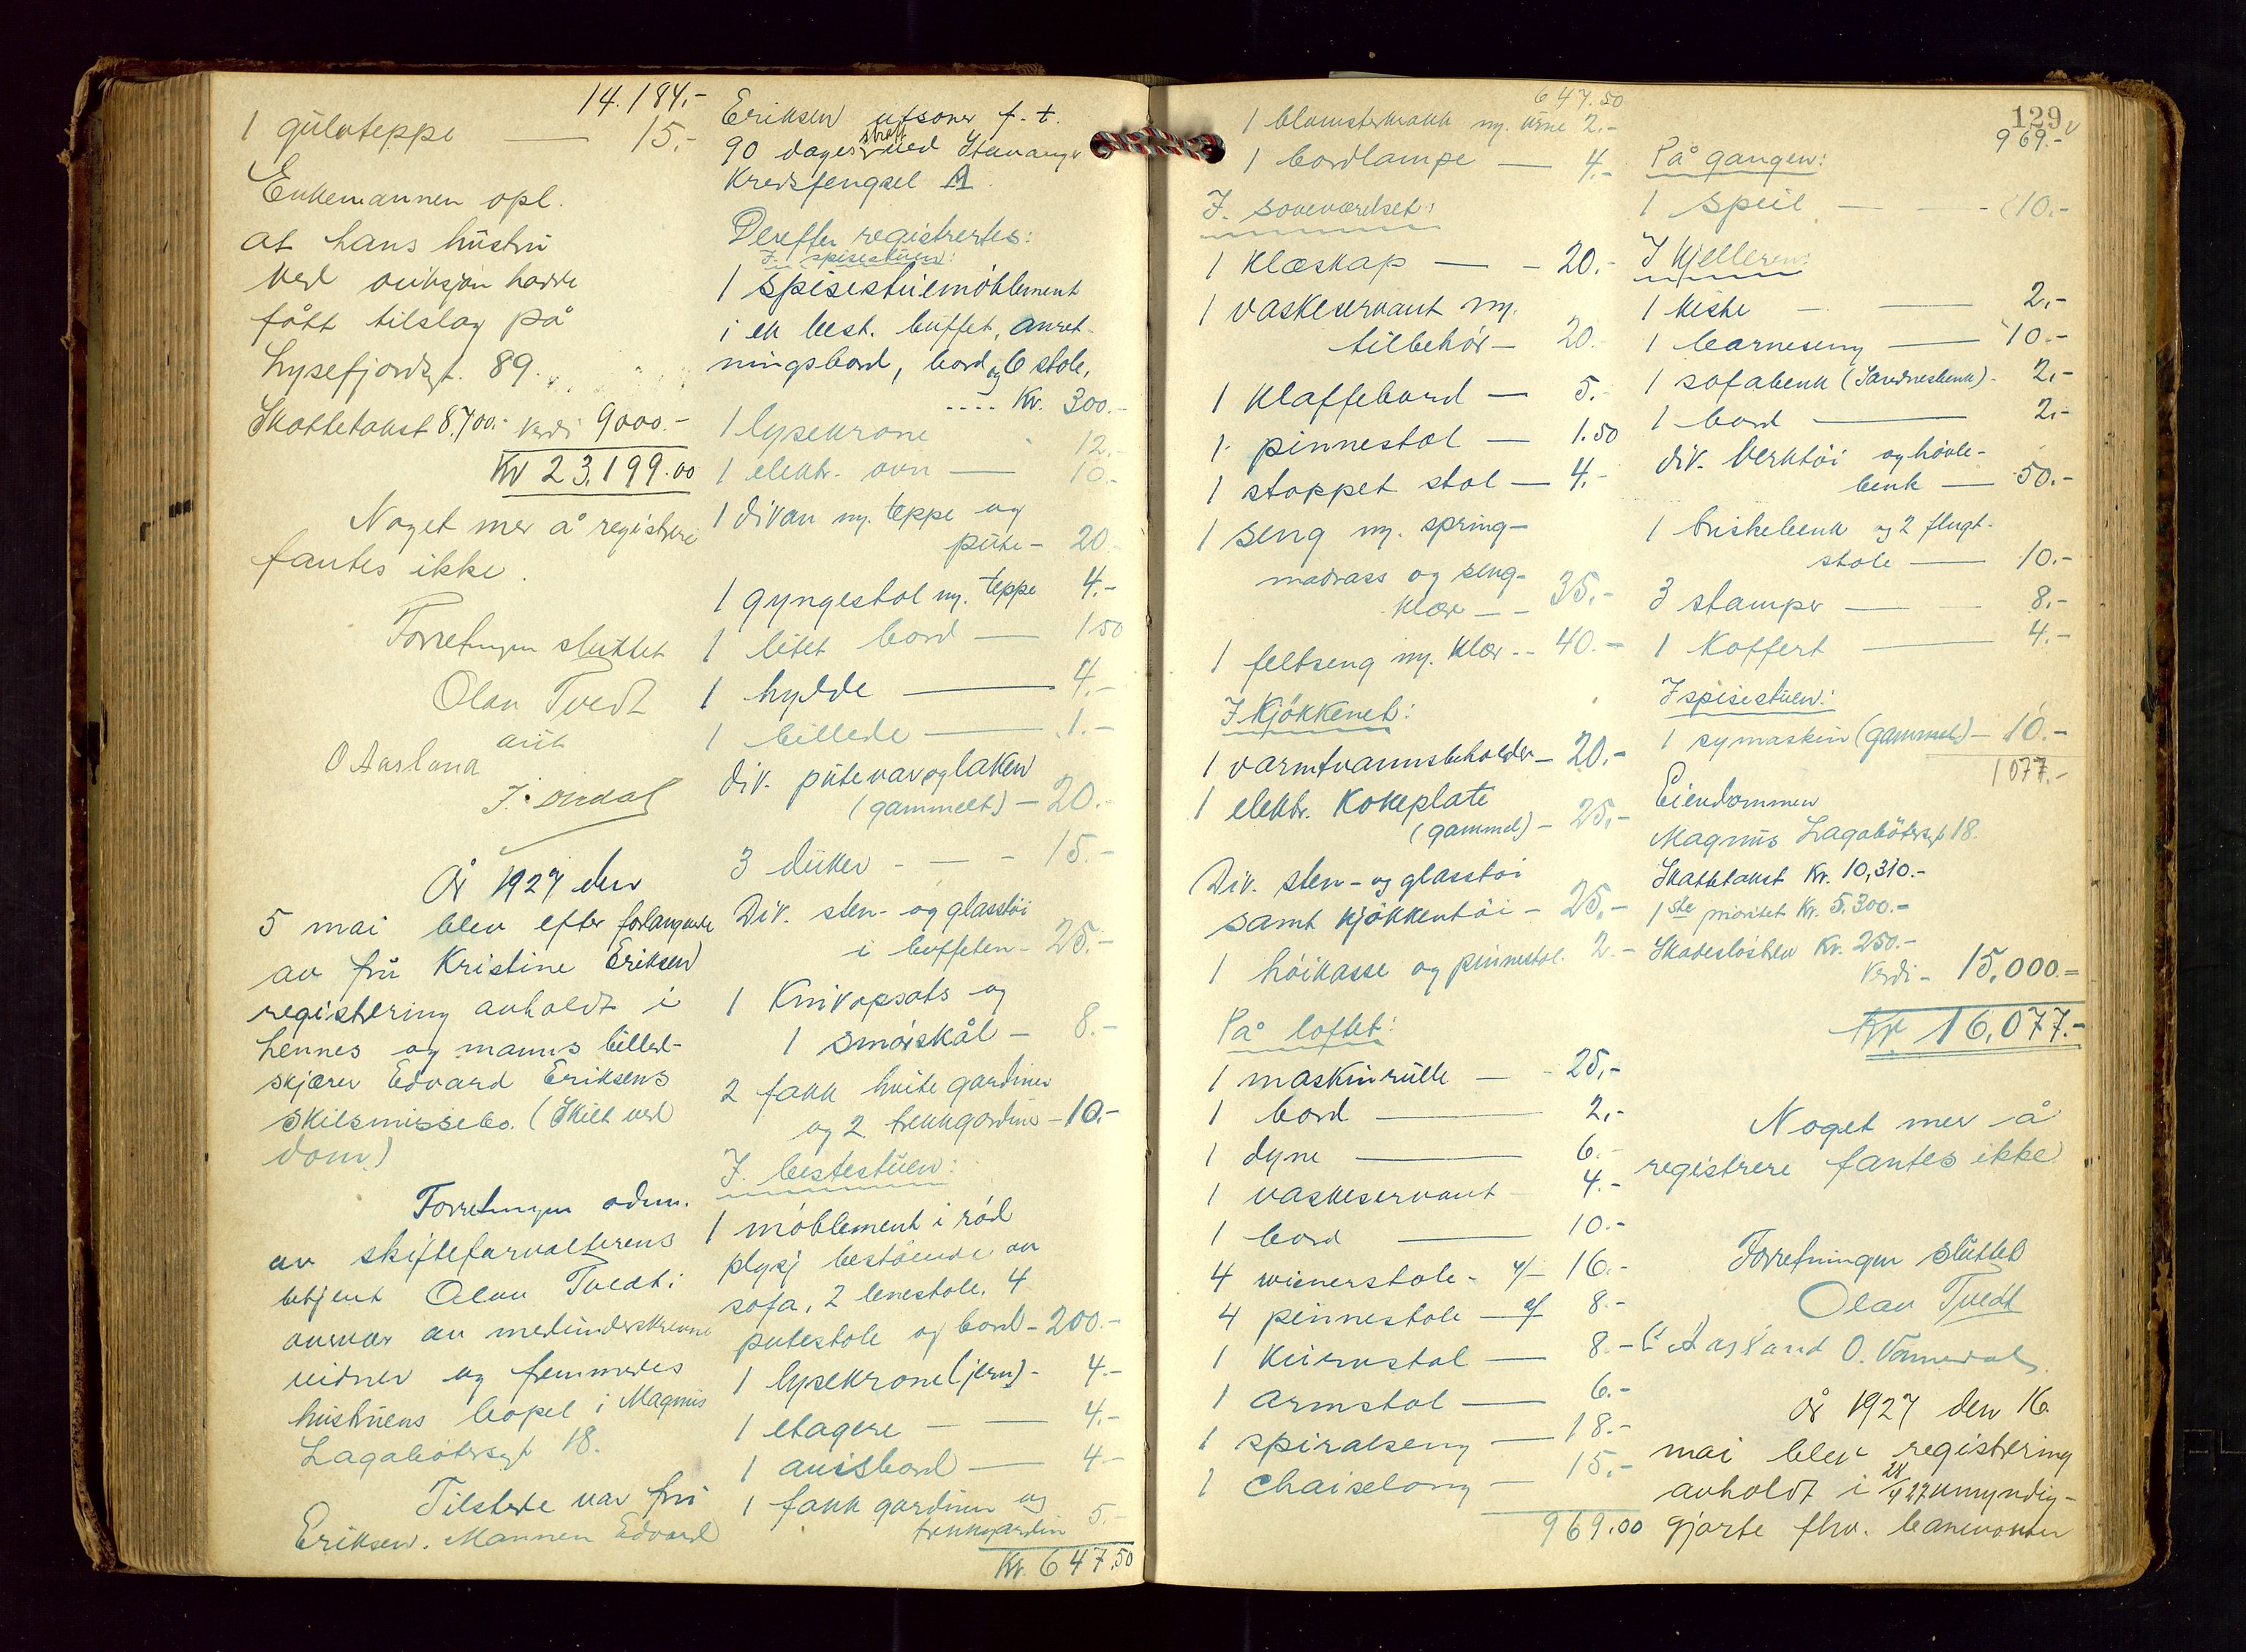 14.184,-
1 gulvteppe — 15.-
Enkemannen opl.
at hans hustru
ved auksjon hadde
fått tilslag på
Lysefjordsgt. 89.
Skattetakst 8.700.- verdi 9000.-
Kr 23.199.00
Noget mer å registrere
fantes ikke.
Forretningen sluttet
Olav Tvedt
O Aasland
År 1927 den
5 mai blev efter forlangende
av fru Kristine Eriksen
registrering avholdt i
hennes og manns billed-
skjærer Edvard Eriksens
skilsmissebo. (Skilt ved
dom.)
Forretningen adm.
av skifteforvalterens
betjent Olav Tvedt i
overvær av medunderskrevne
vidner og fremmedes
hustruens bopel i Magnus
Lagabøtersgt 18.
Tilstede var fru
Eriksen. Mannen Edvard
Eriksen utsoner f. t.
90 dages straff ved Stavanger
Kredsfengsel
Derefter registrertes:
I spisestuen:
1 spisestuemøblement
i ek best. buffet, anret-
ningsbord, bord og 6 stole,
.... Kr. 300.-
1 lysekrone 12.-
1 elektr. ovn — 10.-
1 divan m. teppe og
pute - 20.-
1 gyngestol m. teppe 4.-
1 litet bord — 1 50
1 hylde — 4.-
1 billede — 1.-
div. putevar og laken
(gammelt) - 20.-
3 duker - — - 15.-
Div. sten- og glasstøi
i buffeten - 25.-
1 Knivopsats og
1 smørskål - 8.-
2 fakk hvite gardiner
og 2 trekkgardiner - 10.-
I bestestuen:
1 møblement i rød
plysj bestående av
sofa, 2 lenestole, 4
putestole og bord - 200.-
1 lysekrone (jern) - 4.-
1 etagere — — 4.-
1 avisbord — 4.-
1 fakk gardiner og
trekkgardin 5.-
Kr. 647.50
647.50
1 blomsterkrakk m. urne 2.-
1 bordlampe — 4.-
I soveværelset:
1 Klæskap — - 20.-
1 vaskeservant m.
tilbehør - 20.-
1 Klaffebord — 5.-
1 pinnestol — 1.50
1 stoppet stol — 4.-
1 seng m. spring-
madrass og seng-
klær — - 35.-
1 feltseng m. klær -- 40.-
I Kjøkkenet:
1 varmtvannsbeholder - 20.-
1 elektr. Kokeplate
(gammel) - 25.-
Div. sten- og glasstøi
samt kjøkkentøi - 25.-
1 høikasse og pinnestol. 2.-
På loftet:
1 maskinrulle — - 25.-
1 bord — 2.-
1 dyne — 6.-
1 vaskeservant - 4.-
1 bord — 10.-
4 wienerstole - 4/- 16.-
4 pinnestole — 8.-
1 Kurvstol — 8.-
1 armstol — 6.-
1 spiralseng — 18.-
1 Chaiselong — 15.-
969.00
129
969.-
På gangen:
1 speil — — - 10.-
I Kjelleren:
1 kiste - — 2.-
1 barneseng — 10.-
1 sofabenk (Jærdnesbenk) - 2.-
1 bord — 2.-
div. verktøi og høvle-
benk — 50.-
1 briskebenk og 2 flugt-
stole — 10.-
3 stamper — — 8.-
1 Koffert — 4.-
I spisestuen:
1 symaskin (gammel) - 10.-
1077.-
Eiendommen
Magnus Lagabøtersgt 18.
Skattetakst Kr. 10,310.-
1ste prioritet Kr. 5.300.-
Skadesløsbrev Kr. 250.-
Verdi - 15.000.=
Kr 16.077.-
Noget mer å
registrere fantes ikke
Forretningen sluttet
Olav Tvedt
O Aasland
År 1927 den 16.
mai blev registrering
avholdt i umyndig-
gjorte fhv. banevokter